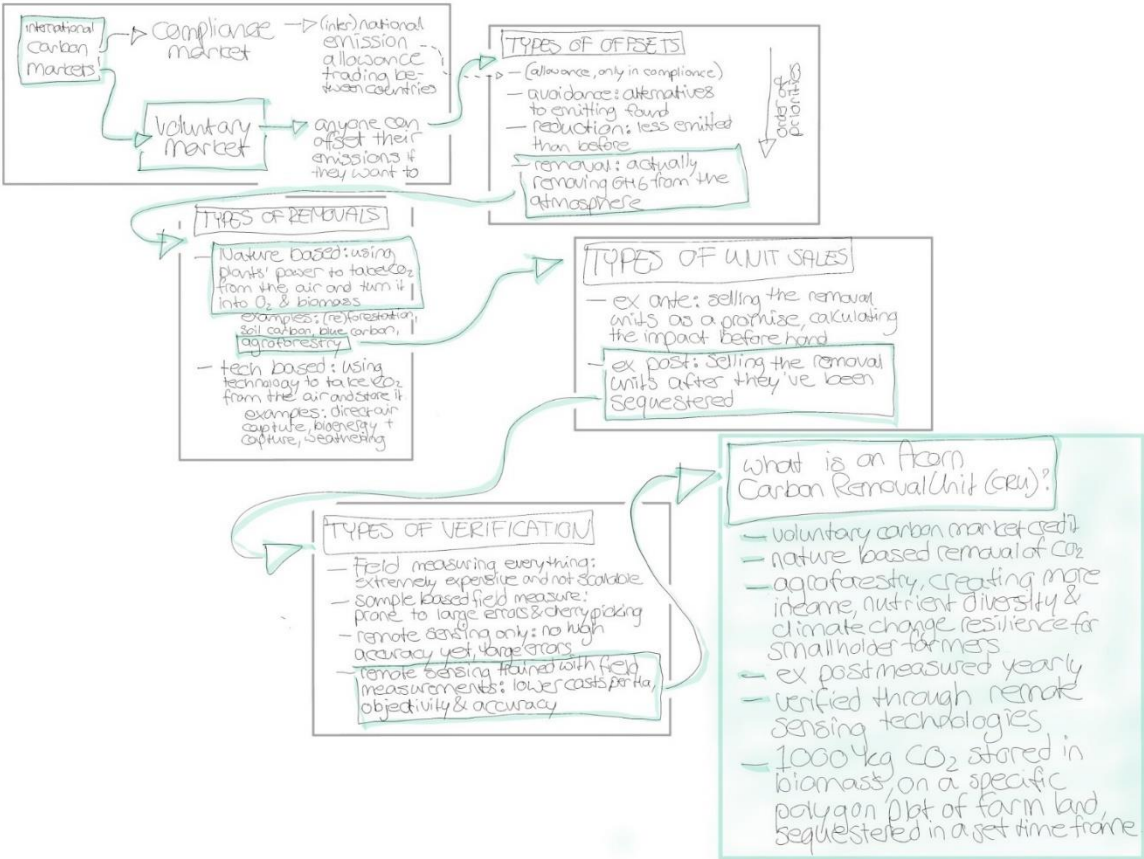 international
carbon
markets
compliance
market
(inter)national
emission
allowance
trading be-
tween countries
voluntary
market
anyone can
offset their
emissions if
they want to
TYPES OF OFFSETS
- (allowance, only in compliance)
- avoidance: alternatives
to emitting found
- reduction: less emitted
than before
- removal: actually
removing GHG from the
atmosphere
order of
priorities
TYPES OF REMOVALS
- Nature based: using
plants' power to take CO2
from the air and turn it
into O2 & biomass
examples: (re)forestation,
soil carbon, blue carbon,
agroforestry
- tech based: using
technology to take CO2
from the air and store it
examples: direct air
capture, bioenergy +
capture, weathering
TYPES OF UNIT SALES
- ex ante: selling the removal
units as a promise, calculating
the impact before hand
- ex post: selling the removal
units after they've been
sequestered
TYPES OF VERIFICATION
- Field measuring everything:
extremely expensive and not scalable
- sample based field measure:
prone to large errors & cherry picking
- remote sensing only: no high
accuracy yet, large errors
- remote sensing trained with field
measurements: lower costs per ha,
objectivity & accuracy
what is an Acorn
Carbon Removal Unit (CRU)?
- voluntary carbon market credit
- nature based removal of CO2
- agroforestry, creating more
income, nutrient diversity &
climate change resilience for
smallholder farmers
- ex post measured yearly
- verified through remote
sensing technologies
- 1000 kg CO2 stored in
biomass, on a specific
polygon plot of farm land,
sequestered in a set time frame